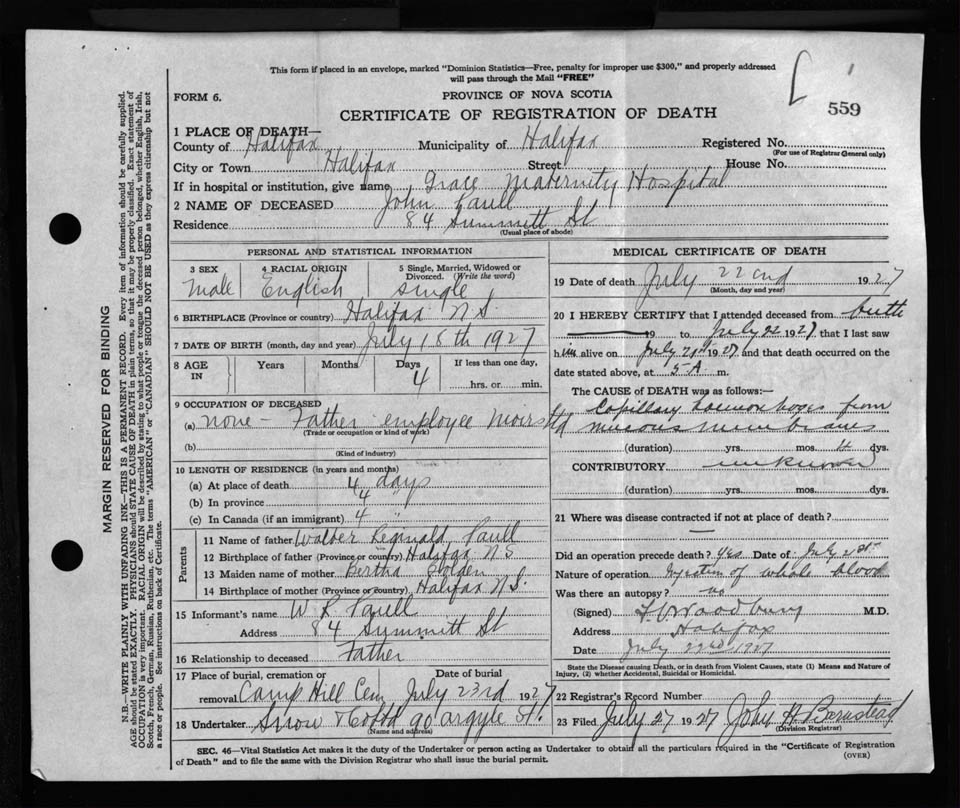 This form if placed in an envelope, marked "Dominion Statistics—Free, penalty for improper use $300," and properly addressed
will pass through the Mail "FREE"
FORM 6.
PROVINCE OF NOVA SCOTIA
559
CERTIFICATE OF REGISTRATION OF DEATH
1 PLACE OF DEATH—
County of Halifax Municipality of Halifax Registered No.
(For use of Registrar General only)
City or Town Halifax Street House No.
If in hospital or institution, give name Grace Maternity Hospital
2 NAME OF DECEASED John Paull
Residence 84 Summitt St
(Usual place of abode)
PERSONAL AND STATISTICAL INFORMATION
3 SEX 4 RACIAL ORIGIN 5 Single, Married, Widowed or
Divorced. (Write the word)
Male English single
6 BIRTHPLACE (Province or country) Halifax N.S.
7 DATE OF BIRTH (month, day and year) July 18th 1927
8 AGE IN Years Months Days If less than one day,
4 hrs. or min.
9 OCCUPATION OF DECEASED
(a) none - Father employee Moirs Ltd
(Trade or occupation or kind of work)
(b)
(Kind of industry)
10 LENGTH OF RESIDENCE (in years and months)
(a) At place of death 4 days
(b) In province 4 "
(c) In Canada (if an immigrant) 4 "
Parents
11 Name of father Walter Reginald Paull
12 Birthplace of father (Province or country) Halifax N.S
13 Maiden name of mother Bertha Bolden
14 Birthplace of mother (Province or country) Halifax N.S.
15 Informant's name W R Paull
Address 84 Summitt St
16 Relationship to deceased Father
17 Place of burial, cremation or Date of burial
removal Camp Hill Cem July 23rd 1927
18 Undertaker Snow & Co Ltd 90 Argyle St.
(Name and address)
MEDICAL CERTIFICATE OF DEATH
19 Date of death July 22nd 1927
(Month, day and year)
20 I HEREBY CERTIFY that I attended deceased from birth
19 to July 22 1927 that I last saw
him alive on July 21st 1927 and that death occurred on the
date stated above, at 5 A m.
The CAUSE of DEATH was as follows:—
Capillary hemorrhages from
mucous membranes
(duration) yrs. mos. 4 dys.
CONTRIBUTORY unknown
(duration) yrs. mos. dys.
21 Where was disease contracted if not at place of death?
Did an operation precede death? Yes Date of July 21st
Nature of operation Injection of whole blood
Was there an autopsy? no
(Signed) Woodbury M.D.
Address Halifax
Date July 22nd 1927
State the Disease causing Death, or in death from Violent Causes, state (1) Means and Nature of
Injury, (2) whether Accidental, Suicidal or Homicidal.
22 Registrar's Record Number
23 Filed July 27 1927 John H Barnstead
(Division Registrar)
SEC. 46—Vital Statistics Act makes it the duty of the Undertaker or person acting as Undertaker to obtain all the particulars required in the "Certificate of Registration
of Death" and to file the same with the Division Registrar who shall issue the burial permit.
(OVER)
MARGIN RESERVED FOR BINDING
N.B.—WRITE PLAINLY WITH UNFADING INK—THIS IS A PERMANENT RECORD. Every item of information should be carefully supplied.
AGE should be stated EXACTLY. PHYSICIANS should STATE CAUSE OF DEATH in plain terms, so that it may be properly classified. Exact statement of
OCCUPATION is very important. RACIAL ORIGIN will be described by stating to what people or tongue the deceased person belonged, whether English, Irish,
Scotch, French, German, Russian, Ruthenian, etc. The terms "AMERICAN" or "CANADIAN" SHOULD NOT BE USED as they express citizenship but not
a race or people. See instructions on back of Certificate.